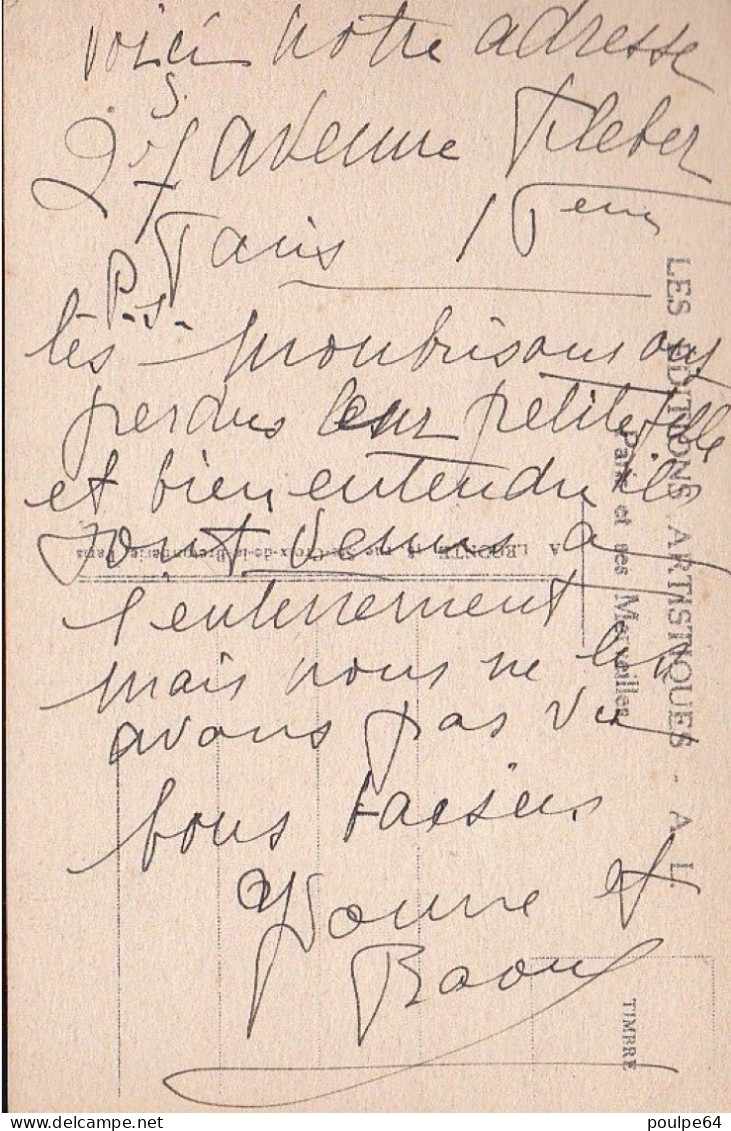 voici notre adresse
avenue Kleber
Paris
P.S.
les ont
perdus leur petite fille
et bien entendu ils
sont venus a
l'enterrement
mais nous ne les
avons pas vu
bons baisers
Yvonne et
Raoul
LES EDITIONS ARTISTIQUES - A. L.
Paris et ses Merveilles
A. LECONTE, rue Ste-Croix-de-la-Bretonnerie, Paris
TIMBRE
poulpe64